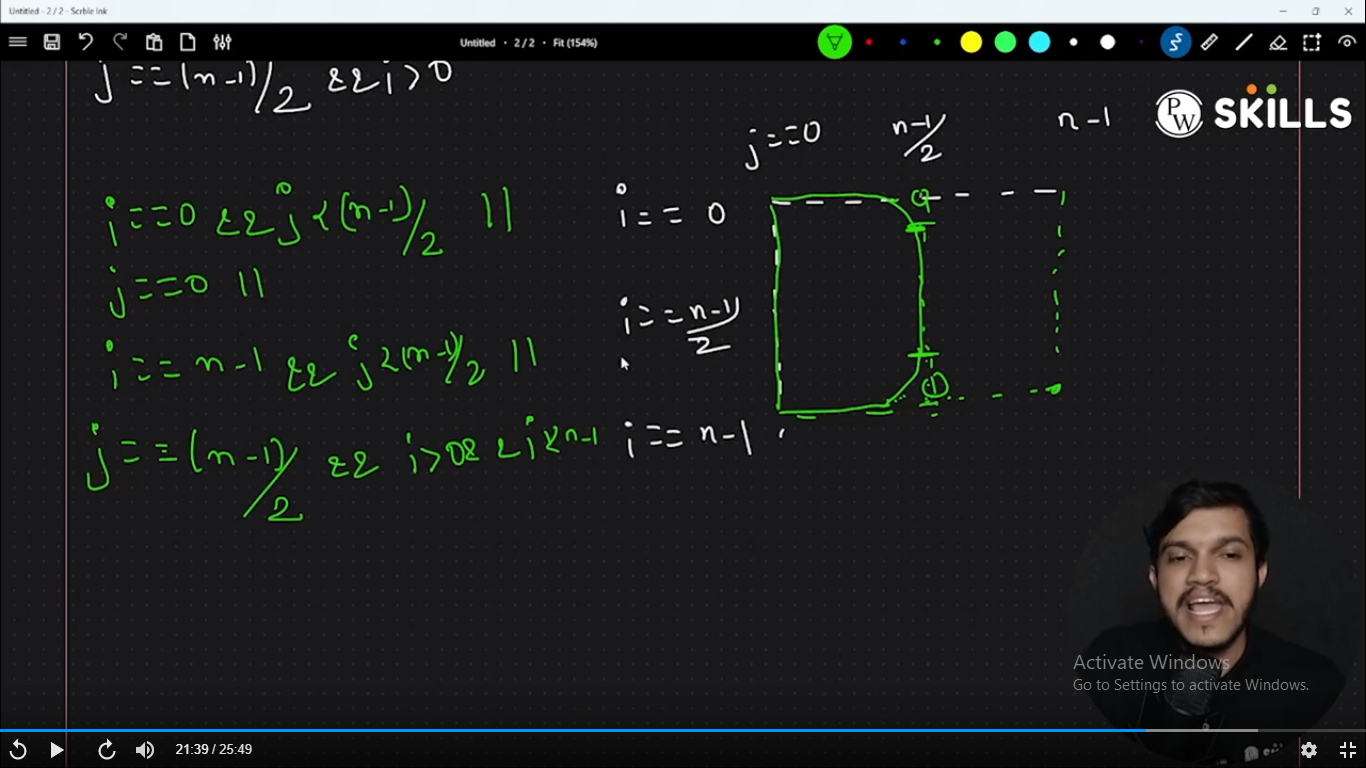 Untitled - 2 / 2 - Scrble Ink
Untitled • 2 / 2 • Fit (154%)
j == (n-1)/2 && i>0
PW SKILLS
j==0
n-1/2
n-1
i==0 && j<(n-1)/2 ||
i == 0
j==0 ||
i == n-1/2
i == n-1 && j<(n-1)/2 ||
j == (n-1)/2 && i>0 && i<n-1
i == n-1
Activate Windows
Go to Settings to activate Windows.
21:39 / 25:49